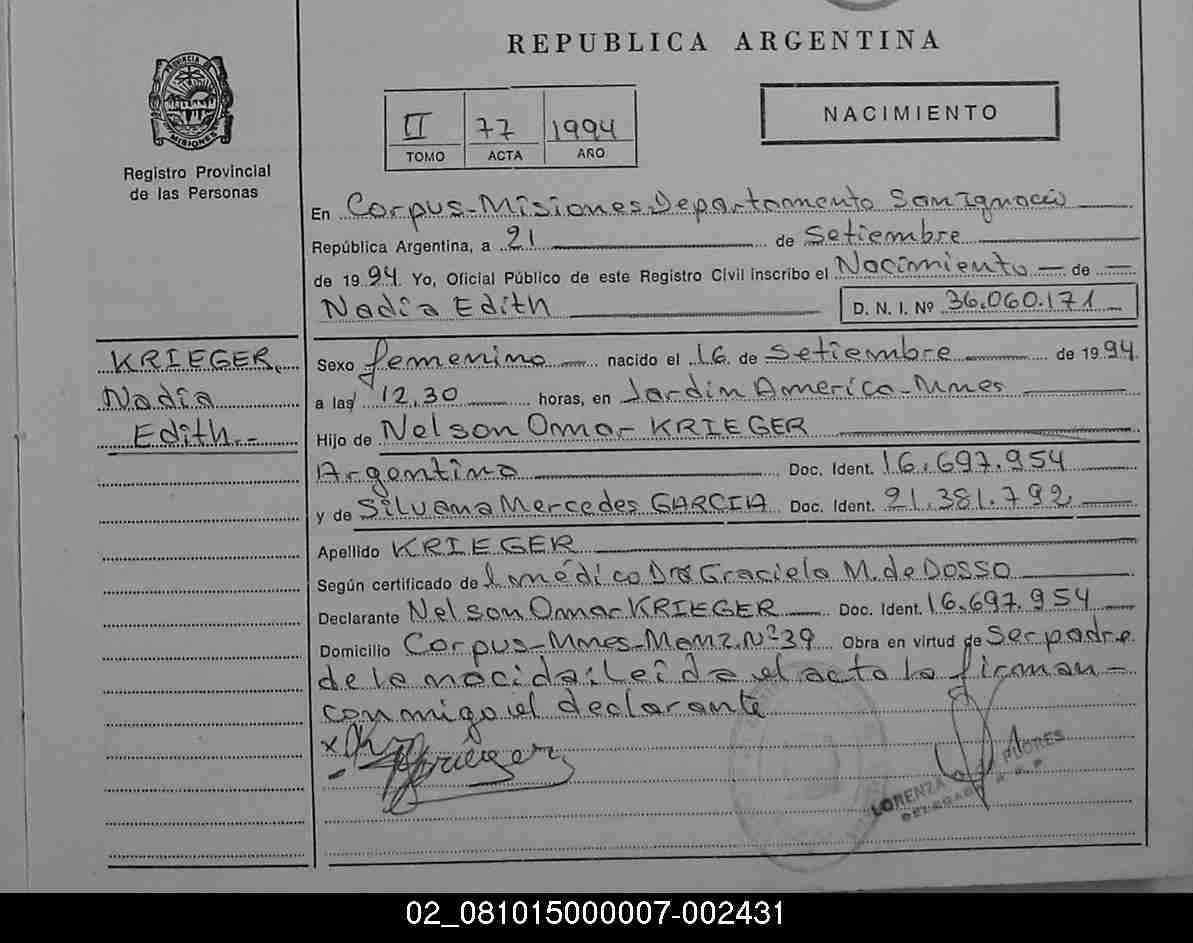 REPUBLICA ARGENTINA
PROVINCIA DE MISIONES
Registro Provincial
de las Personas
II 77 1994
TOMO ACTA AÑO
NACIMIENTO
En Corpus-Misiones Departamento San Ignacio
República Argentina, a 21 de Setiembre
de 1994. Yo, Oficial Público de este Registro Civil inscribo el Nacimiento — de —
Nadia Edith D. N. I. Nº 36.060.171
KRIEGER
Nadia
Edith.-
Sexo femenino nacido el 16 de Setiembre de 1994.
a las 12,30 horas, en Jardín America-Mnes
Hijo de Nelson Omar KRIEGER
Argentino Doc. Ident. 16.697.954
y de Silvana Mercedes GARCIA Doc. Ident. 21.381.792
Apellido KRIEGER
Según certificado de l médico Dra Graciela M. de Dosso
Declarante Nelson Omar KRIEGER Doc. Ident. 16.697.954
Domicilio Corpus-Mnes-Manz. Nº 39 Obra en virtud de Ser padre
de la nacida; Leída el acta la firman -
conmigo el declarante
x
Krieger
LORENZA FLORES
02_081015000007-002431